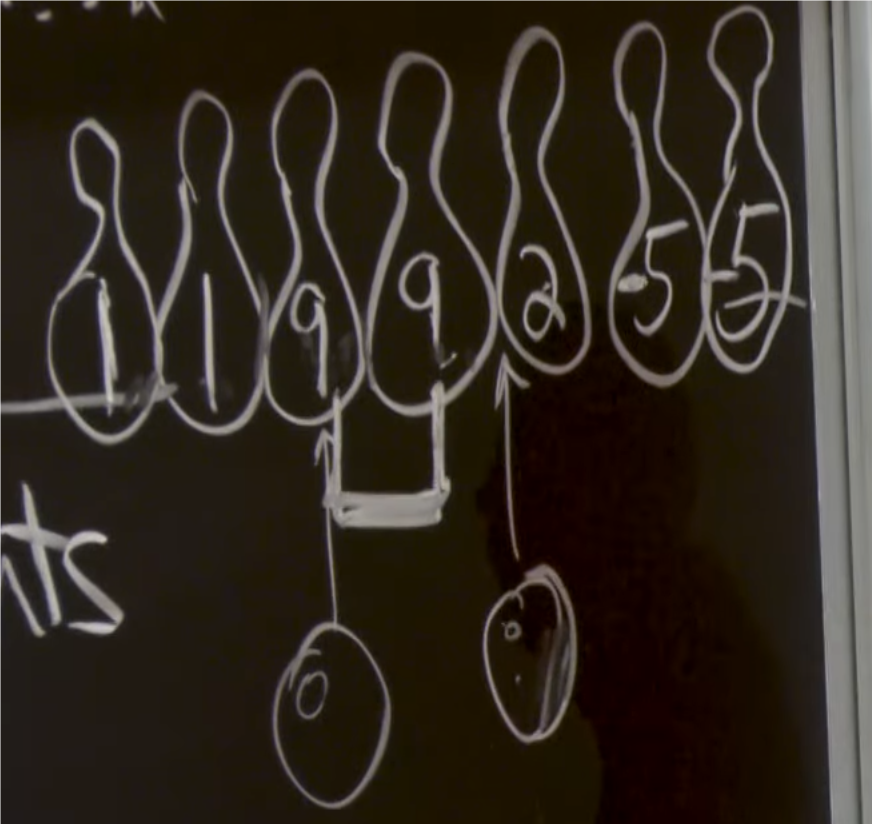 1 1 9 9 2 -5 -5
nts